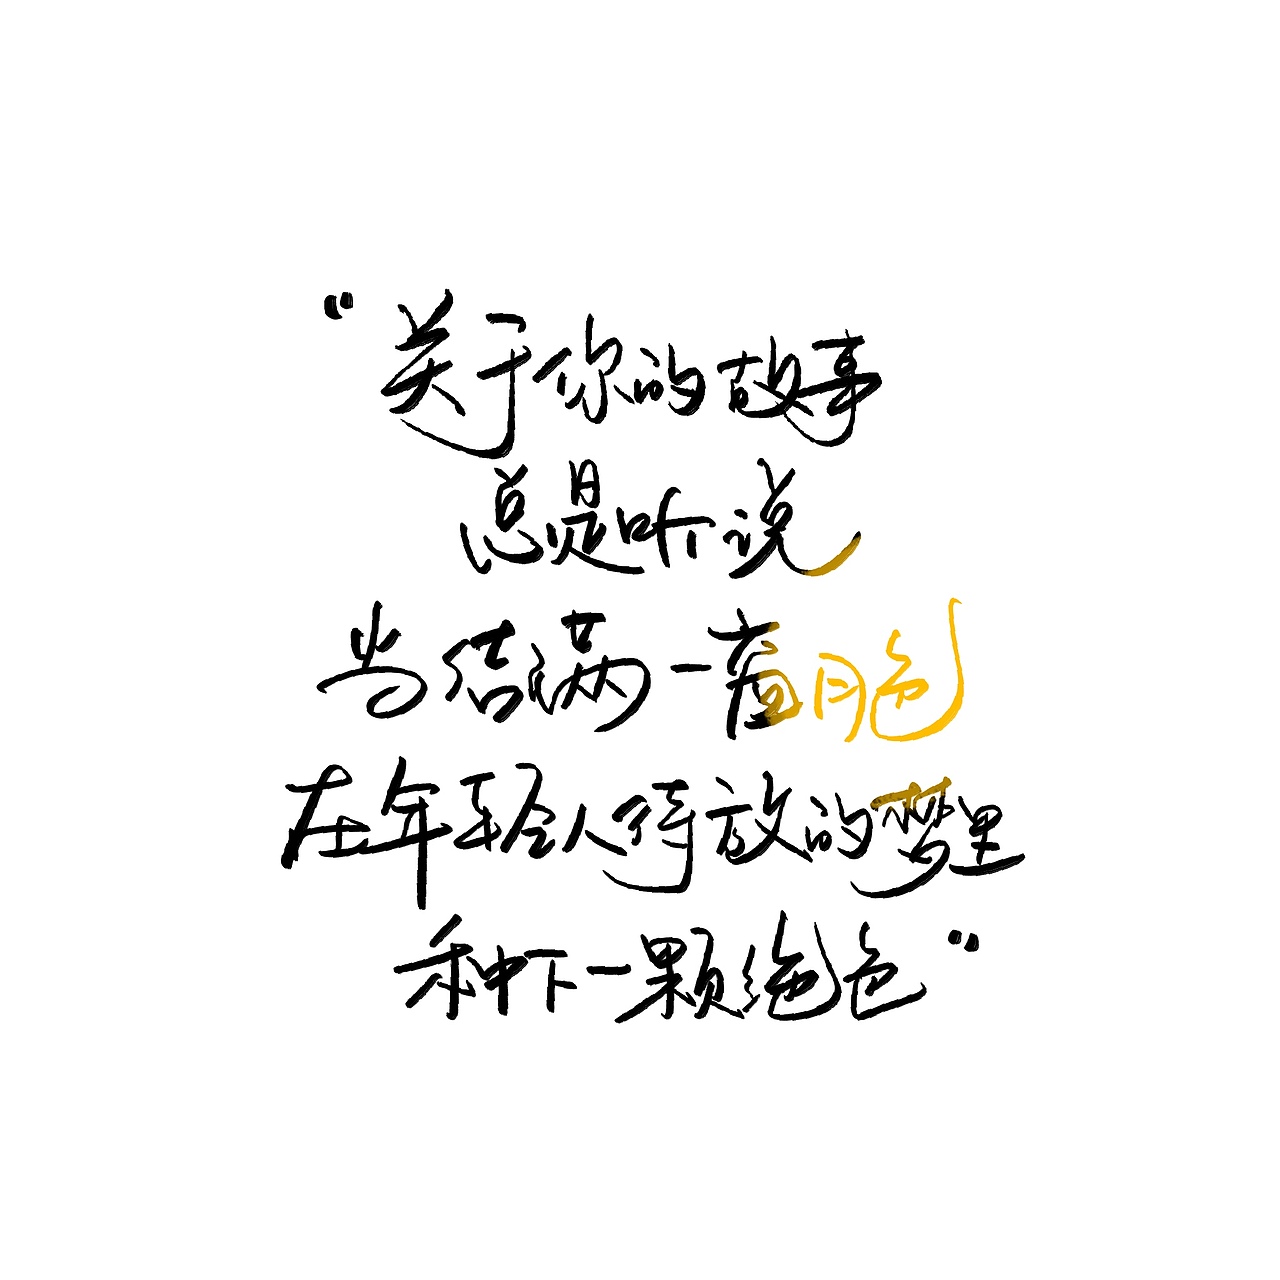 “关于你的故事
总是听说
当结满一斋月色
在年轻人待放的梦里
种下一颗绝色”